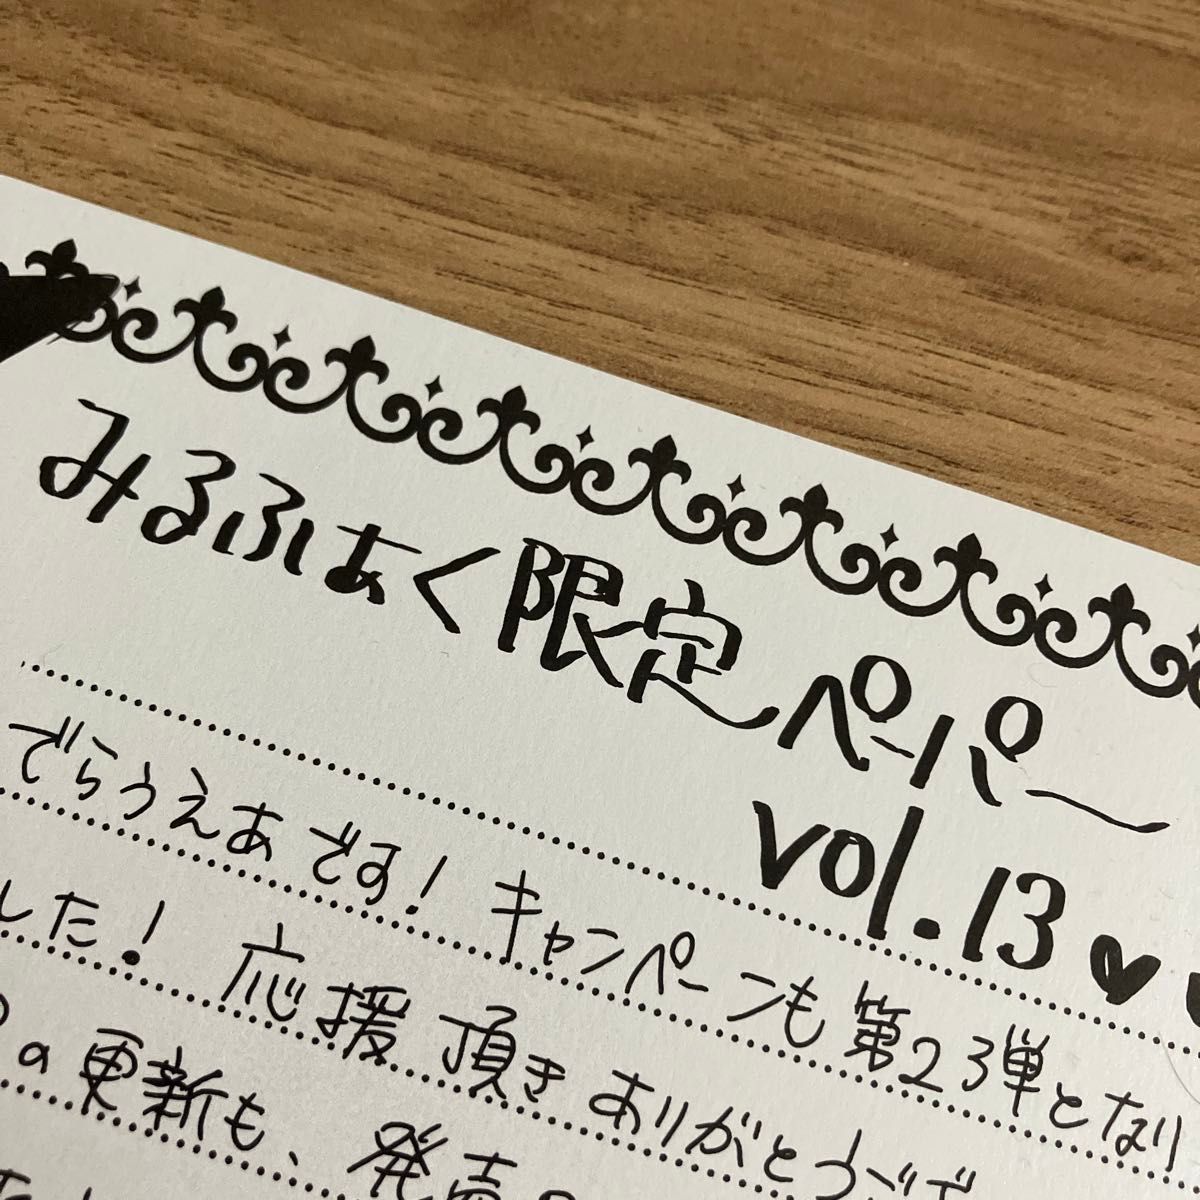 みるふぁく限定ペーパー
vol.13♥
でらうえあです！キャンペーンも第23弾となり
した！応援頂きありがとうござ
の更新も、発売